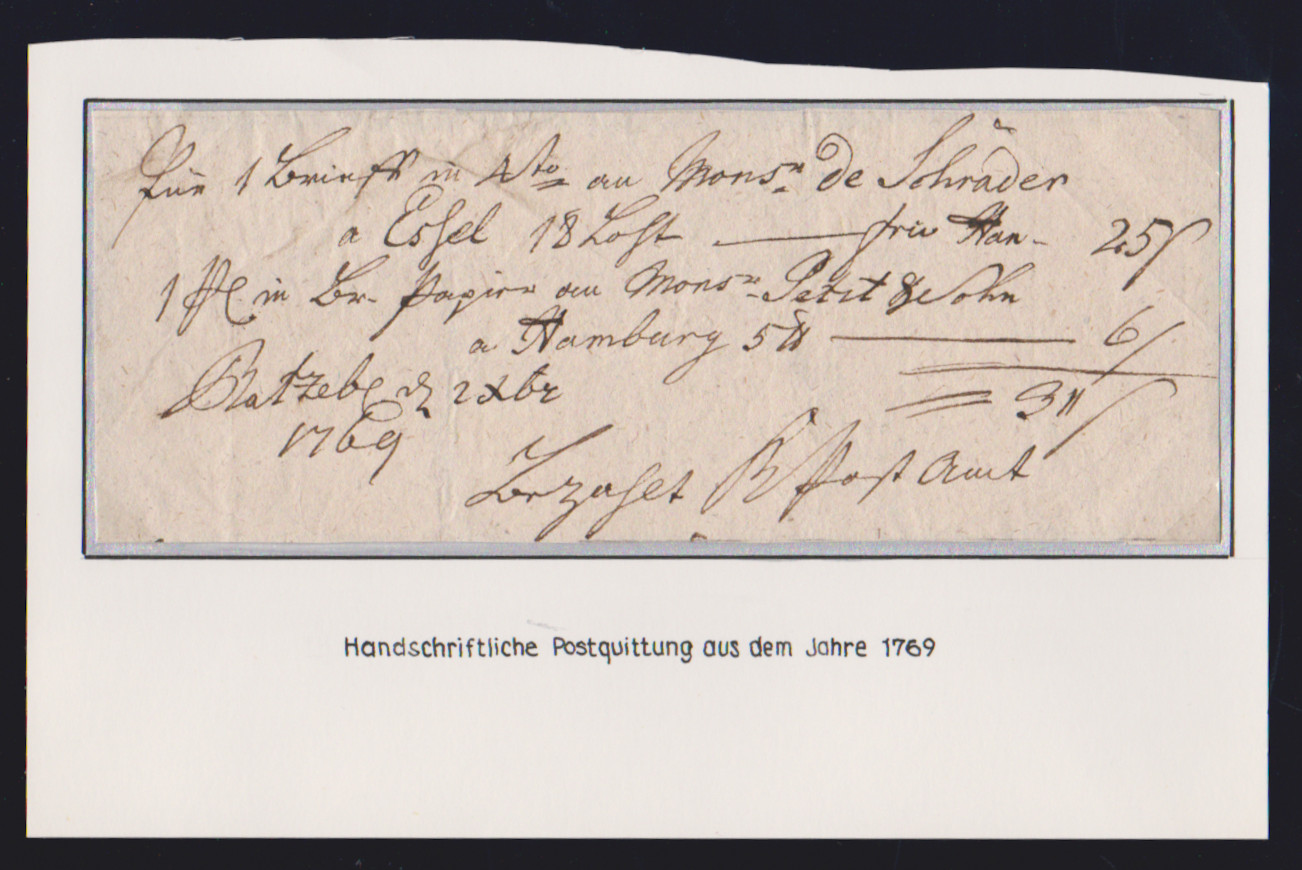 Für 1 Brieff in 4to an Monsr. De Schrader
a Essel 18 Loht — frco Han- 25 ß
1 in Br. Papier an Monsr. Petit & Sohn
a Hamburg 5 ℔ — 6 ß
Ratzebg d 2 Xbr 31 ß
1769
Bezahlt Post Amt
Handschriftliche Postquittung aus dem Jahre 1769